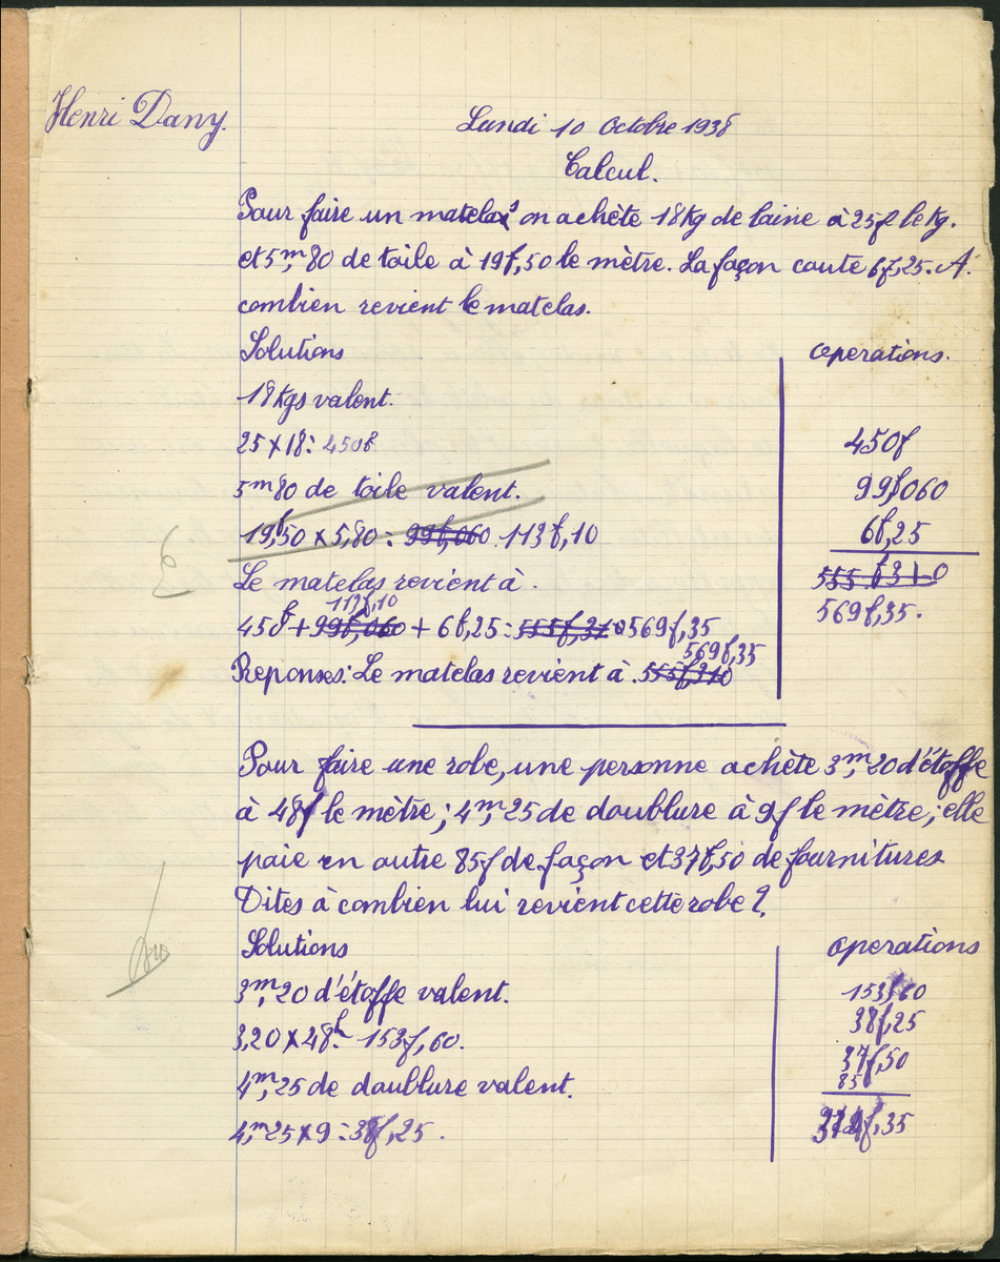 Henri Dany.
Lundi 10 Octobre 1938
Calcul.
Pour faire un matelas on achète 18kg de laine à 25f le kg.
et 5m,80 de toile à 19f,50 le mètre. La façon coute 6f,25. A
combien revient le matelas.
Solutions
operations.
18kgs valent.
25 x 18 : 450f
450f
5m80 de toile valent.
99f060
19f,50 x 5,80 : 99f,060. 113f,10
6f,25
Le matelas revient à.
555.f310
113f,10
569f,35.
450f + 99f,060 + 6f,25 : 555f,310 569f,35
569f,35
Reponses : Le matelas revient à . 555f310
Pour faire une robe, une personne achète 3m,20 d'étoffe
à 48f le mètre ; 4m,25 de doublure à 9f le mètre ; elle
paie en outre 85f de façon et 37f,50 de fournitures
Dites à combien lui revient cette robe ?.
Solutions
operations
3m,20 d'étoffe valent.
153f60
38f,25
3,20 x 48f : 153f,60.
37f,50
4m,25 de doublure valent.
85
4,m25 x 9 : 38f,25.
314f,35